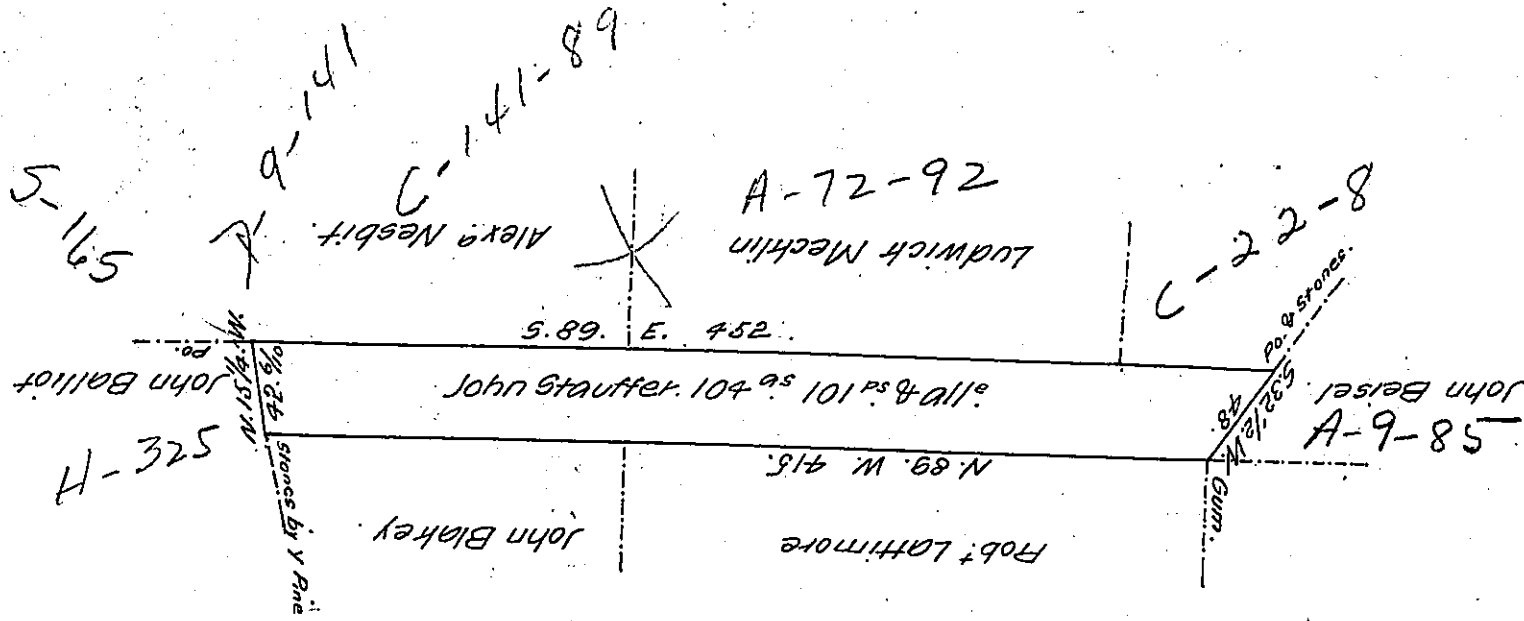 S-165
9'141
C-141-89
A-72-92
C-22-8
Alexr. Nesbit.
Ludwick Mechlin
Po. & Stones.
S.89. E. 452.
Po.
John Balliot
N.15¼.W.
42.6/10
John Stauffer. 104 as. 101 ps & all:
S32½.W
48.
John Beisel
A-9-85
H-325
Stones by Y Pine
N.89. W. 415.
Gum.
John Blakey
Robt. Lattimore